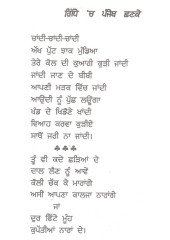 ਹਿੱਧੇ 'ਚ ਪੰਜੇਬ ਛਣਕੇ
ਚਾਂਦੀ-ਚਾਂਦੀ-ਚਾਂਦੀ
ਅੱਖ ਪੁੱਟ ਝਾਕ ਮੁੰਡਿਆ
ਤੇਰੇ ਕੋਲ ਦੀ ਕੁਆਰੀ ਕੁੜੀ ਜਾਂਦੀ
ਜਾਂਦੀ ਜਾਣ ਦੇ ਬੀਬੀ
ਆਪਣੀ ਮੜਕ ਵਿੱਚ ਜਾਂਦੀ
ਆਉਂਦੀ ਨੂੰ ਪੁੱਛ ਲਊਂਗਾ
ਖੰਡ ਦੇ ਖਿਡੌਣੇ ਖਾਂਦੀ
ਵਿਆਹ ਕਰਵਾ ਕੁੜੀਏ
ਸਾਥੋਂ ਜਰੀ ਨਾ ਜਾਂਦੀ।
♣ ♣ ♣
ਤੂੰ ਵੀ ਕਦੇ ਛੜਿਆਂ ਦੇ
ਦਾਲ ਲੈਣ ਨੂੰ ਆਵੇਂ
ਕੌਲੀ ਚੱਕ ਕੇ ਮਾਰਾਂਗੀ
ਅਸੀਂ ਆਪਣਾ ਕਾਲਜਾ ਨਾਰਾਂਗੀ
ਜਾਂ
ਦੁਰ ਫਿੱਟੇ ਮੂੰਹ
ਕੁਪੱਤੀਆਂ ਨਾਰਾਂ ਦੇ।